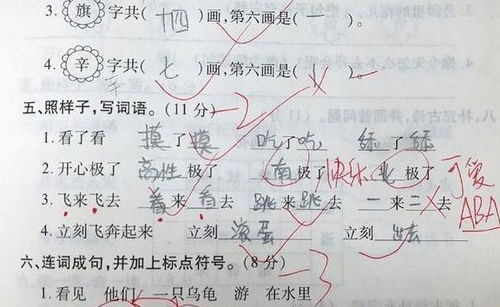 3.旗字共(十四)画,第六画是(一)。
4.辛字共(七)画,第六画是( )。
五、照样子,写词语。(11分) -2
1.看了看 摸了摸 吃了吃 舔了舔
2.开心极了 高性极了 南极了 快乐 北极了 可爱
3.飞来飞去 着来着去 跳来跳去 一来二去 ABA
4.立刻飞奔起来 立刻滚蛋 立刻出去
六、连词成句,并加上标点符号。(8分) -3
1.看见 他们 一只乌龟 游 在水里